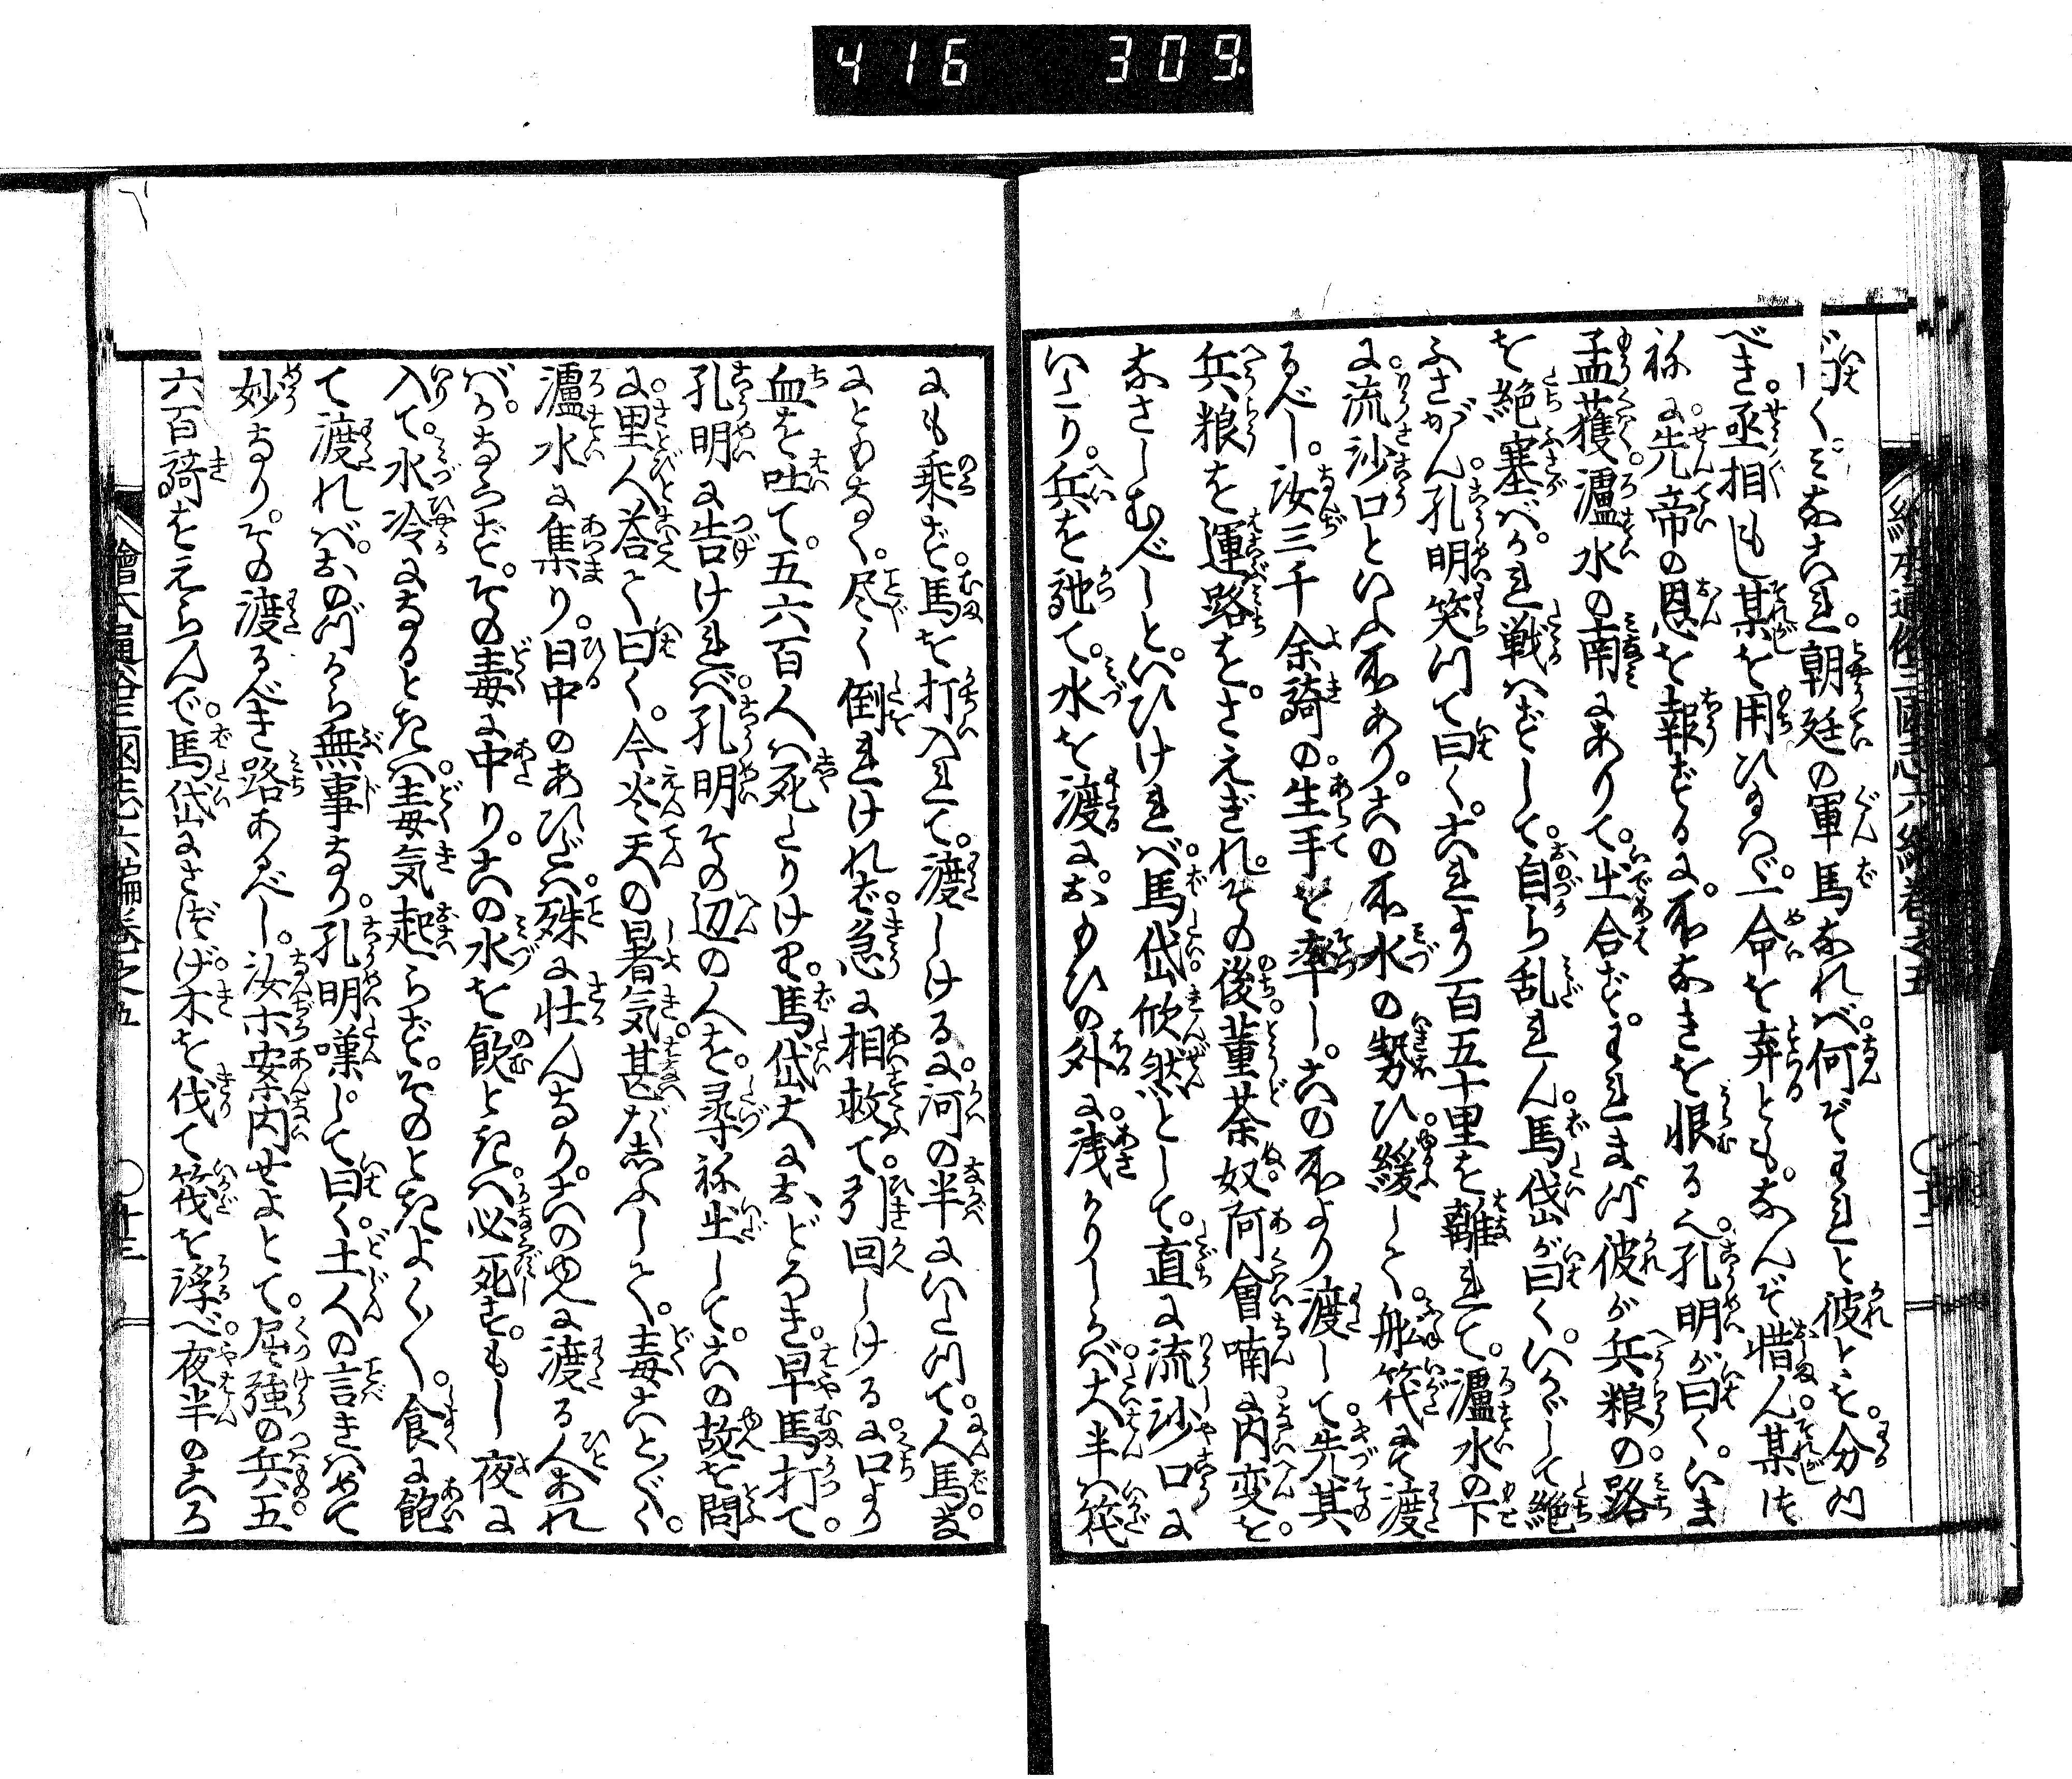 416 309.
曰く。みなこれ。朝廷の軍馬なれバ。何ぞわれと彼とを。分つ
べき。丞相もし某を用ひ玉ハヾ。一命を弃とも。なんぞ惜ん。某は
祢に。先帝の恩を報ぜるに。不なきを恨る而已。孔明が曰く。いま
孟獲瀘水の南にありて。出合ず。われまづ彼が兵粮の。路
を絶塞バ。かれ戦ハずして。自ら乱れん。馬岱が曰く。いかゞして絶
ふさがん。孔明笑つて曰く。これより百五十里を離れて。瀘水の下
に。流沙口といふ所あり。この所水の勢ひ緩して。舟筏にて渡
るべし。汝三千余騎の。生手を率し。この所より渡して。先其
兵粮を運路を。さえぎれ。その後董荼奴。阿會喃に内変を。
なさしむべしと。いひけれバ。馬岱欣然として。直に流沙口に
いたり。兵を弛て。水を渡におもひの外に。浅かりしかバ。大半ハ筏
にも乗ず。馬を打入れて。渡しけるに。河の半にいたつて。人馬ま
ことゝもなく。尽く倒れけれバ。急に相救て。引回しけるに。口より
血を吐て。五六百人ハ死たりけり。馬岱大におどろき。早馬打て。
孔明に告けれバ。孔明その辺の人を。尋祢出して。この故を問
に。里人答て曰く。今炎天の暑気。甚だ烈ふして。毒ことごとく。
瀘水に集り。日中のあひだハ。殊に壮んなり。このゆへに渡る人あれ
バ。かならず。その毒に中り。この水を飲ときハ。必死す。もし夜に
入て。水冷になるときハ。毒気起らず。そのときよくよく。食に飽
て渡れバ。おのづから無事なり。孔明嘆じて曰く。土人の言きハめて
妙なり。その渡るべき路あるべし。汝ホ案内せよとて。屈強の兵五
六百騎をえらんで。馬岱にさづけ。木を伐て筏を浮べ。夜半のころ